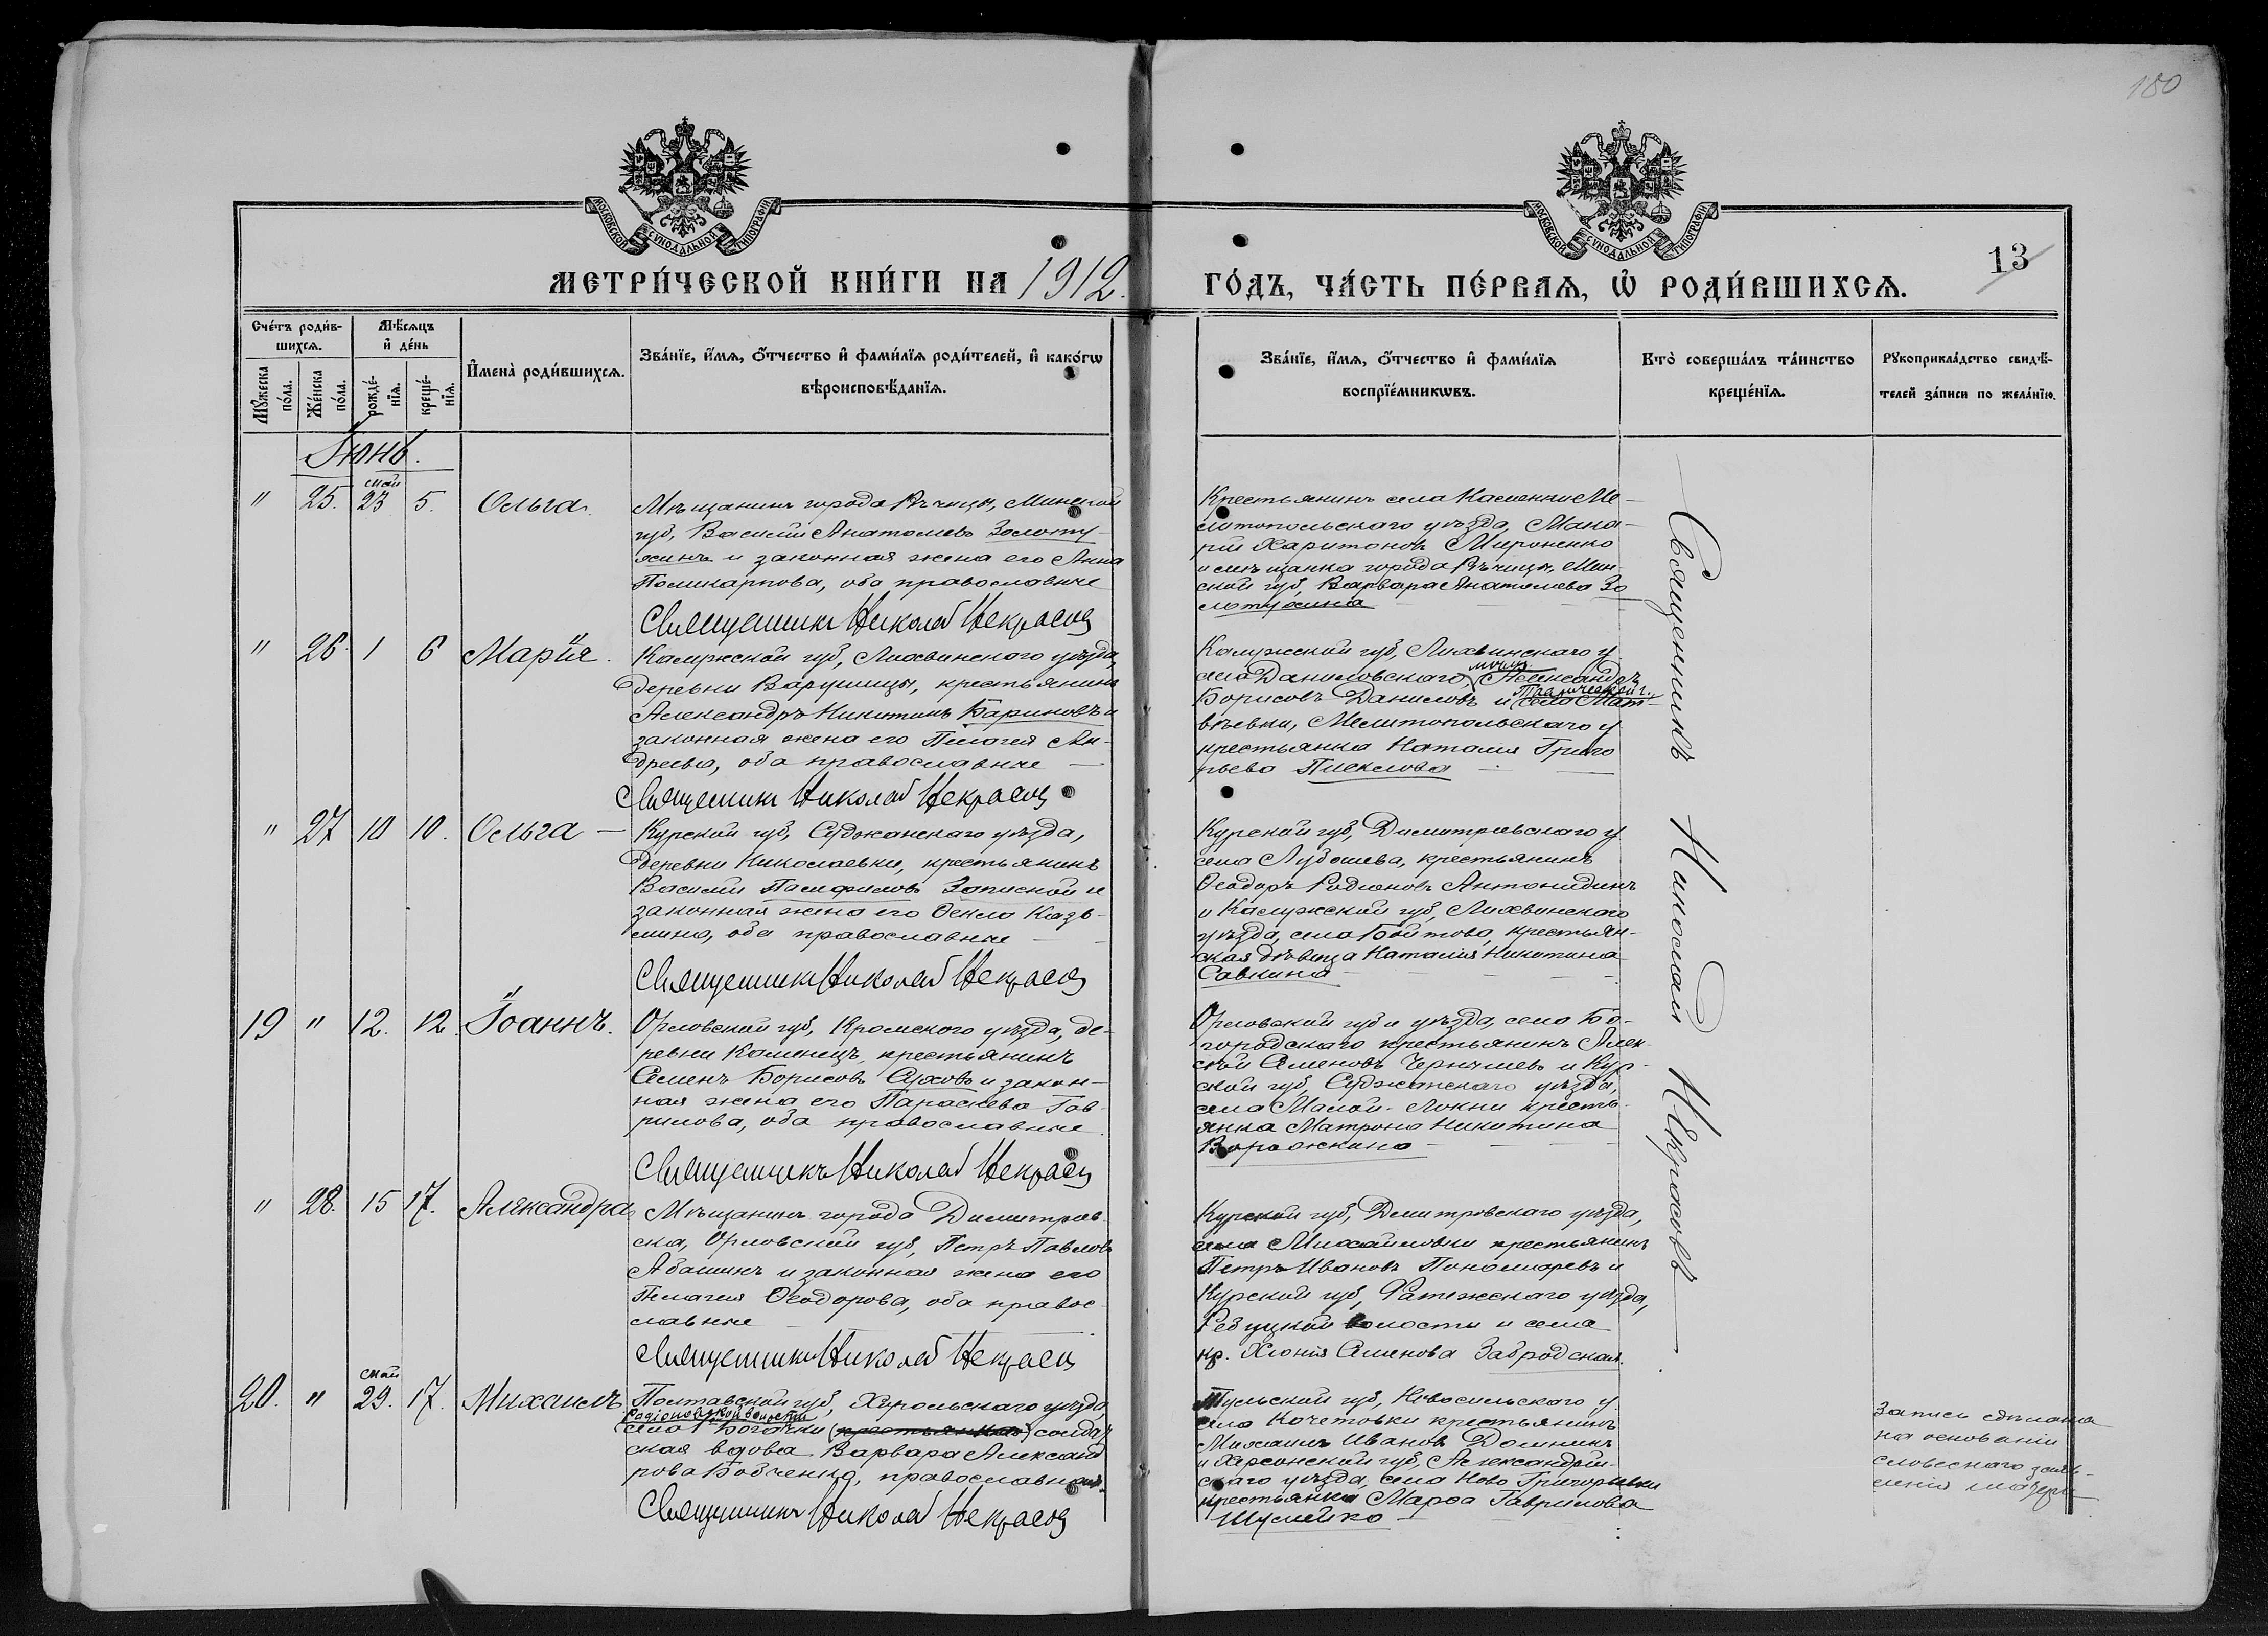 180
МОСКОВСКОЙ СѴНОДАЛЬНОЙ ТИПОГРАФІИ
МОСКОВСКОЙ СѴНОДАЛЬНОЙ ТИПОГРАФІИ
13
МЕТРИ́ЧЕСКОЙ КНИ́ГИ НА 1912. ГО́ДЪ, ЧА́СТЬ ПЕ́РВАѦ, Ѡ҆ РОДИ́ВШИХСѦ.
Сче́тъ роди́в-
шихсѧ.
Мꙋ́жеска по́ла.
Же́нска по́ла.
Мѣ́сѧцъ и҆ де́нь
рожде́-нїѧ.
креще́-нїѧ.
И҆мена̀ роди́вшихсѧ.
Зва́нїе, и҆́мѧ, ѻ҆́тчество и҆ фами́лїѧ роди́телей, и҆ како́гѡ
вѣроисповѣ́данїѧ.
Зва́нїе, и҆́мѧ, ѻ҆́тчество и҆ фами́лїѧ
воспрїе́мникѡвъ.
Кто̀ соверша́лъ та́инство
креще́нїѧ.
Рꙋкоприкла́дство свидѣ́-
телей за́писи по жела́нїю.
Іюнь.
" 25. май 23 5. Ольга.
Мѣщанинъ города Рѣчицы, Минской
губ, Василій Анатолиевъ Золоту-
хинъ и законная жена его Анна
Поликарпова, оба православные
Священникъ Николай Некрасовъ
Крестьянинъ села Каменки Ме-
литопольскаго уѣзда, Мака-
рій Харитоновъ Мироненко
и мѣщанка города Рѣчицы, Мин-
ской губ, Варвара Анатолиева Зо
лотухина
" 26. 1 6 Марія.
Калужской губ, Лихвинскаго уѣзда,
деревни Варушицы, крестьянинъ
Александръ Никитинъ Бариновъ и
законная жена его Пелагея Ан-
дреева, оба православные
Священникъ Николай Некрасовъ
Калужской губ, Лихвинскаго у
села Даниловскаго, Александръ
Борисовъ Даниловъ и Таврической г. села Мат-
вѣевки, Мелитопольскаго у
крестьянка Наталия Григо
рьева Плеклова
" 27 10 10. Ольга
Курской губ, Суджанскаго уѣзда,
деревни Николаевки, крестьянинъ
Василій Памфиловъ Запиской и
законная жена его Ѳекла Кузь-
мина, оба православные
Священникъ Николай Некрасовъ
Курской губ, Димитріевскаго у
села Лубошева, крестьянинъ
Ѳеодоръ Родионовъ Антонидинъ
и Калужской губ, Лихвинскаго
уѣзда, села Бойтова, крестьян-
ская дѣвица Наталия Никитина
Савкина
19 " 12. 12. Іоаннъ.
Орловской губ, Кромскаго уѣзда, де-
ревни Каменецъ, крестьянинъ
Семенъ Борисовъ Суховъ и закон-
ная жена его Параскева Гав-
рилова, оба православные
Священникъ Николай Некрасовъ
Орловской губ и уѣзда, села Бо-
городскаго крестьянинъ Алек
сѣй Семеновъ Чернышевъ и Кур-
ской губ, Суджанскаго уѣзда,
села Малой-Локни кресть-
янка Матрона Никитина
Ворожкина
" 28. 15 17. Александра
Мѣщанинъ города Димитров-
ска, Орловской губ, Петръ Павловъ
Абашинъ и законная жена его
Пелагея Ѳеодорова, оба правос-
лавные
Священникъ Николай Некрасовъ
Курской губ, Дмитровскаго уѣзда,
села Михайловки крестьянинъ
Петръ Ивановъ Пономаревъ и
Курской губ, Фатежскаго уѣзда,
волости и села
кр. Хіонія Семенова Забродская.
20. " май 29. 17. Михаилъ
Полтавской губ, Хорольскаго уѣзда,
Родіоновской волости
села Богачки (крестьянка) солдат
ская вдова Варвара Александ
рова Бобченко, православная.
Священникъ Николай Некрасовъ
Тульской губ, Новосильскаго у.
села Кочетовки крестьянинъ
Михаилъ Ивановъ Домнинъ
и Херсонской губ, Александрій-
скаго уѣзда, села Ново Григорьевки
крестьянка Марѳа Гаврилова
Шулейко
Священникъ Николай Некрасовъ
Запись сдѣлана
на основаніи
словеснаго заяв-
ленія матери